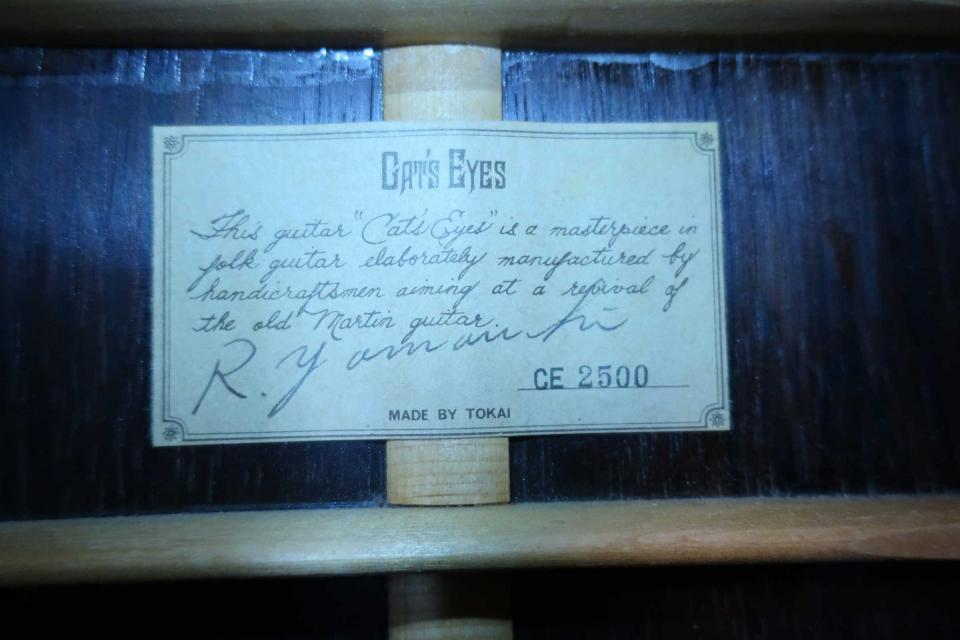 CAT'S EYES
This guitar "Cat's Eyes" is a masterpiece in
folk guitar elaborately manufactured by
handicraftsmen aiming at a revival of
the old Martin guitar.
R. Yamanshi
CE 2500
MADE BY TOKAI